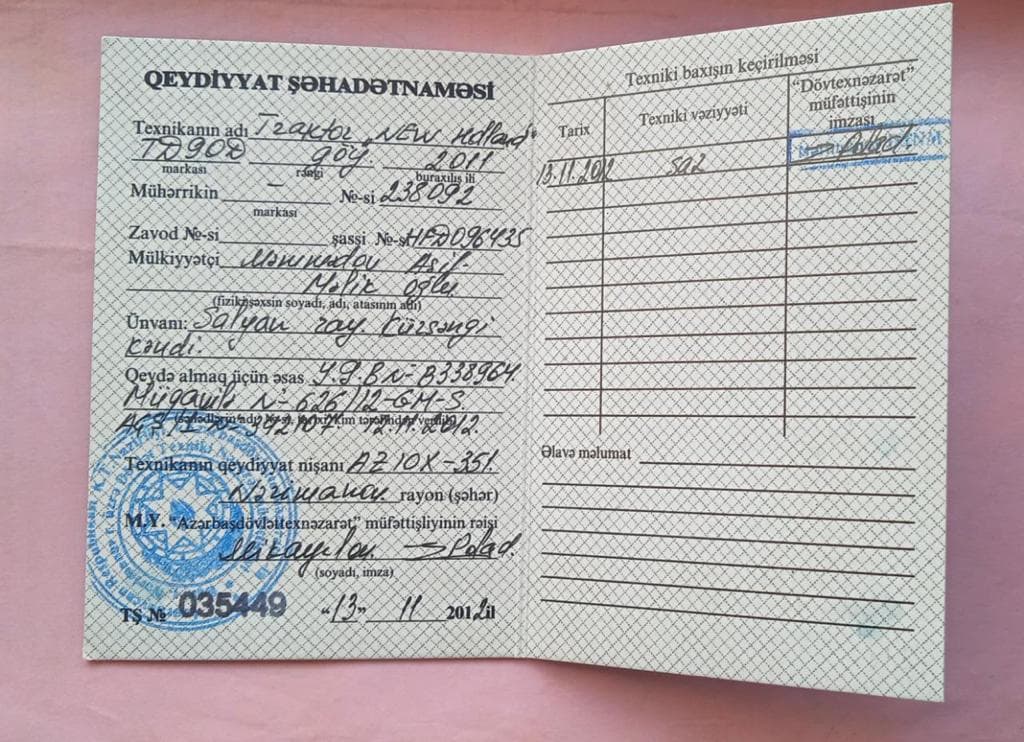 QEYDİYYAT ŞƏHADƏTNAMƏSİ
Texnikanın adı Traktor NEW Holland
TD90D göy 2011
markası rəngi buraxılış ili
Mühərrikin — №-si 238092
markası
Zavod №-si şassi №-si HFD096435
Mülkiyyətçi Məmmədov Asif
Məlik oğlu
(fiziki şəxsin soyadı, adı, atasının adı)
Ünvanı: Salyan ray. Kürsəngi
kəndi.
Qeydə almaq üçün əsas Y.g.B N- B338964.
Müqavilə N- 626/12-GM-S
392107. 12.11.2012.
Texnikanın qeydiyyat nişanı AZ 10X-351.
Nərimanov rayon (şəhər)
M.Y. "Azərbaşdövləttexnəzarət" müfəttişliyinin rəisi
Mikayılov
(soyadı, imza)
TŞ № 035449 "13" 11 2012 il
Texniki baxışın keçirilməsi
Tarix Texniki vəziyyəti "Dövtexnəzarət" müfəttişinin imzası
13.11.2012 saz
Əlavə məlumat